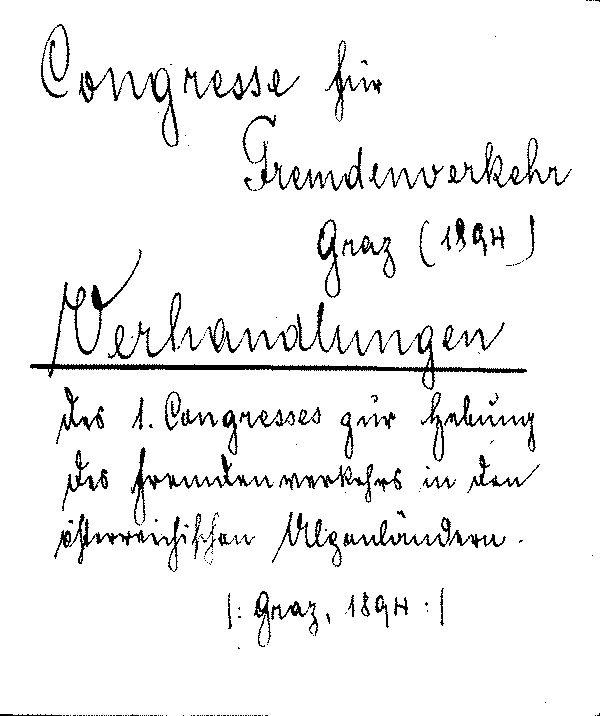 Congresse für
Fremdenverkehr
Graz (1894)
Verhandlungen
des 1. Congresses zur Hebung
des Fremdenverkehrs in den
österreichischen Alpenländern.
|: Graz, 1894 :|